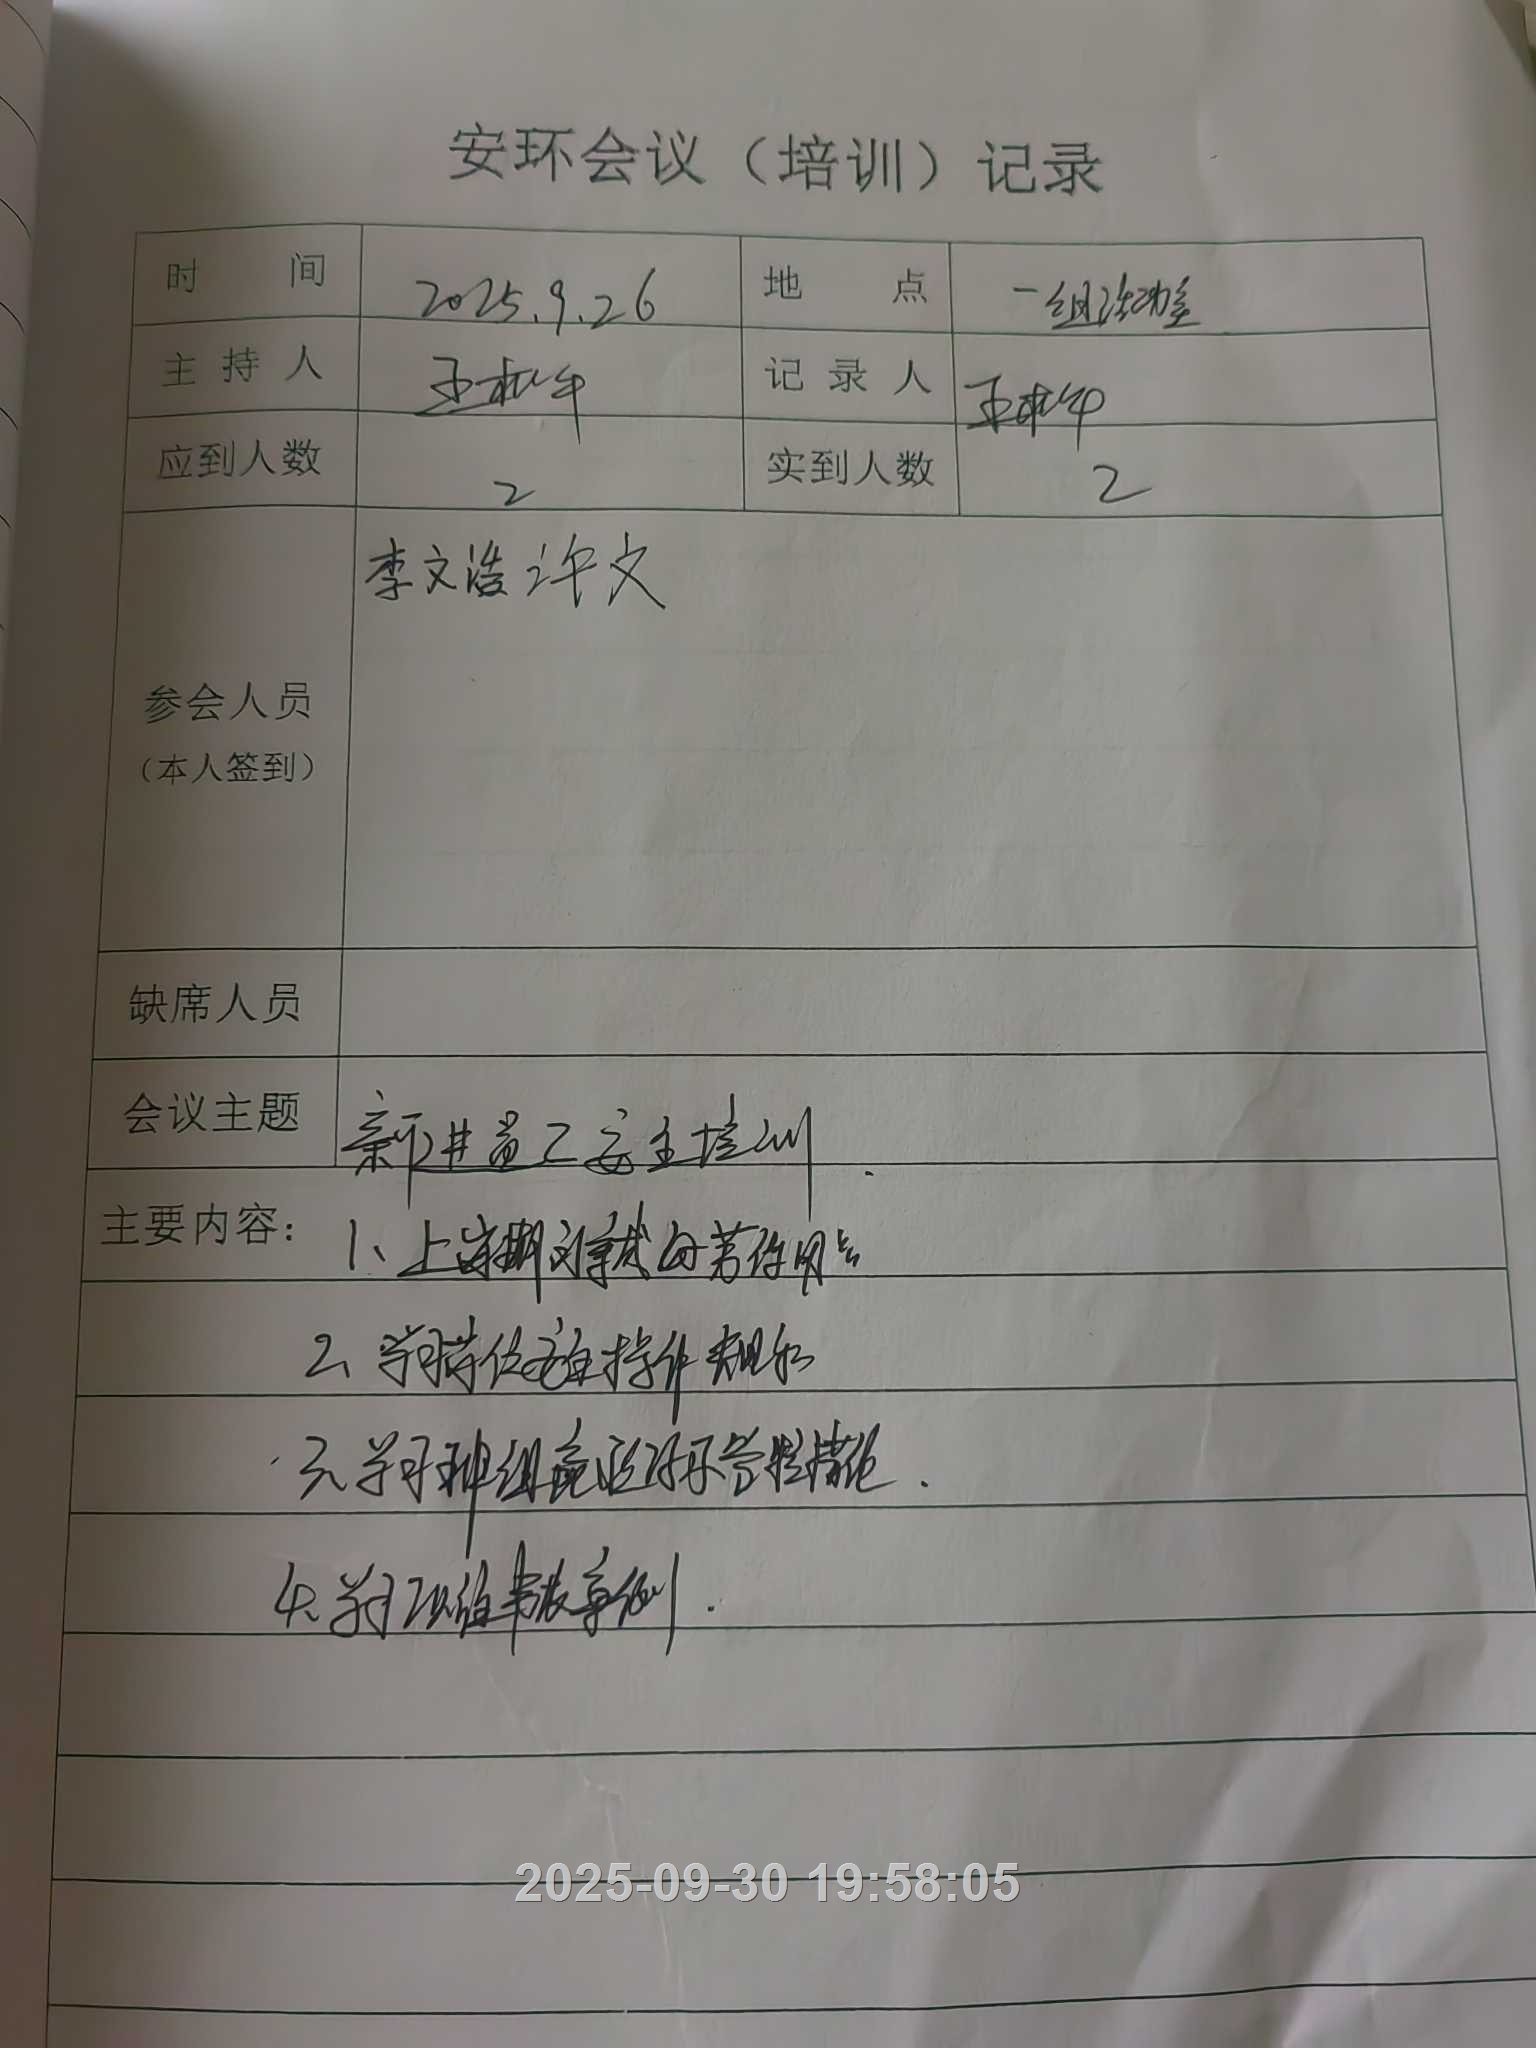 安环会议（培训）记录
时间 2025.9.26 地点 一组活动室
主持人 王 记录人 王
应到人数 2 实到人数 2
李文浩 许文
参会人员
（本人签到）
缺席人员
会议主题 新进员工安全培训.
主要内容：1、上岗期间穿戴好劳保用品
2、学习岗位安全操作规程
3、学习班组危险源及管控措施.
4、学习 事故案例.
2025-09-30 19:58:05